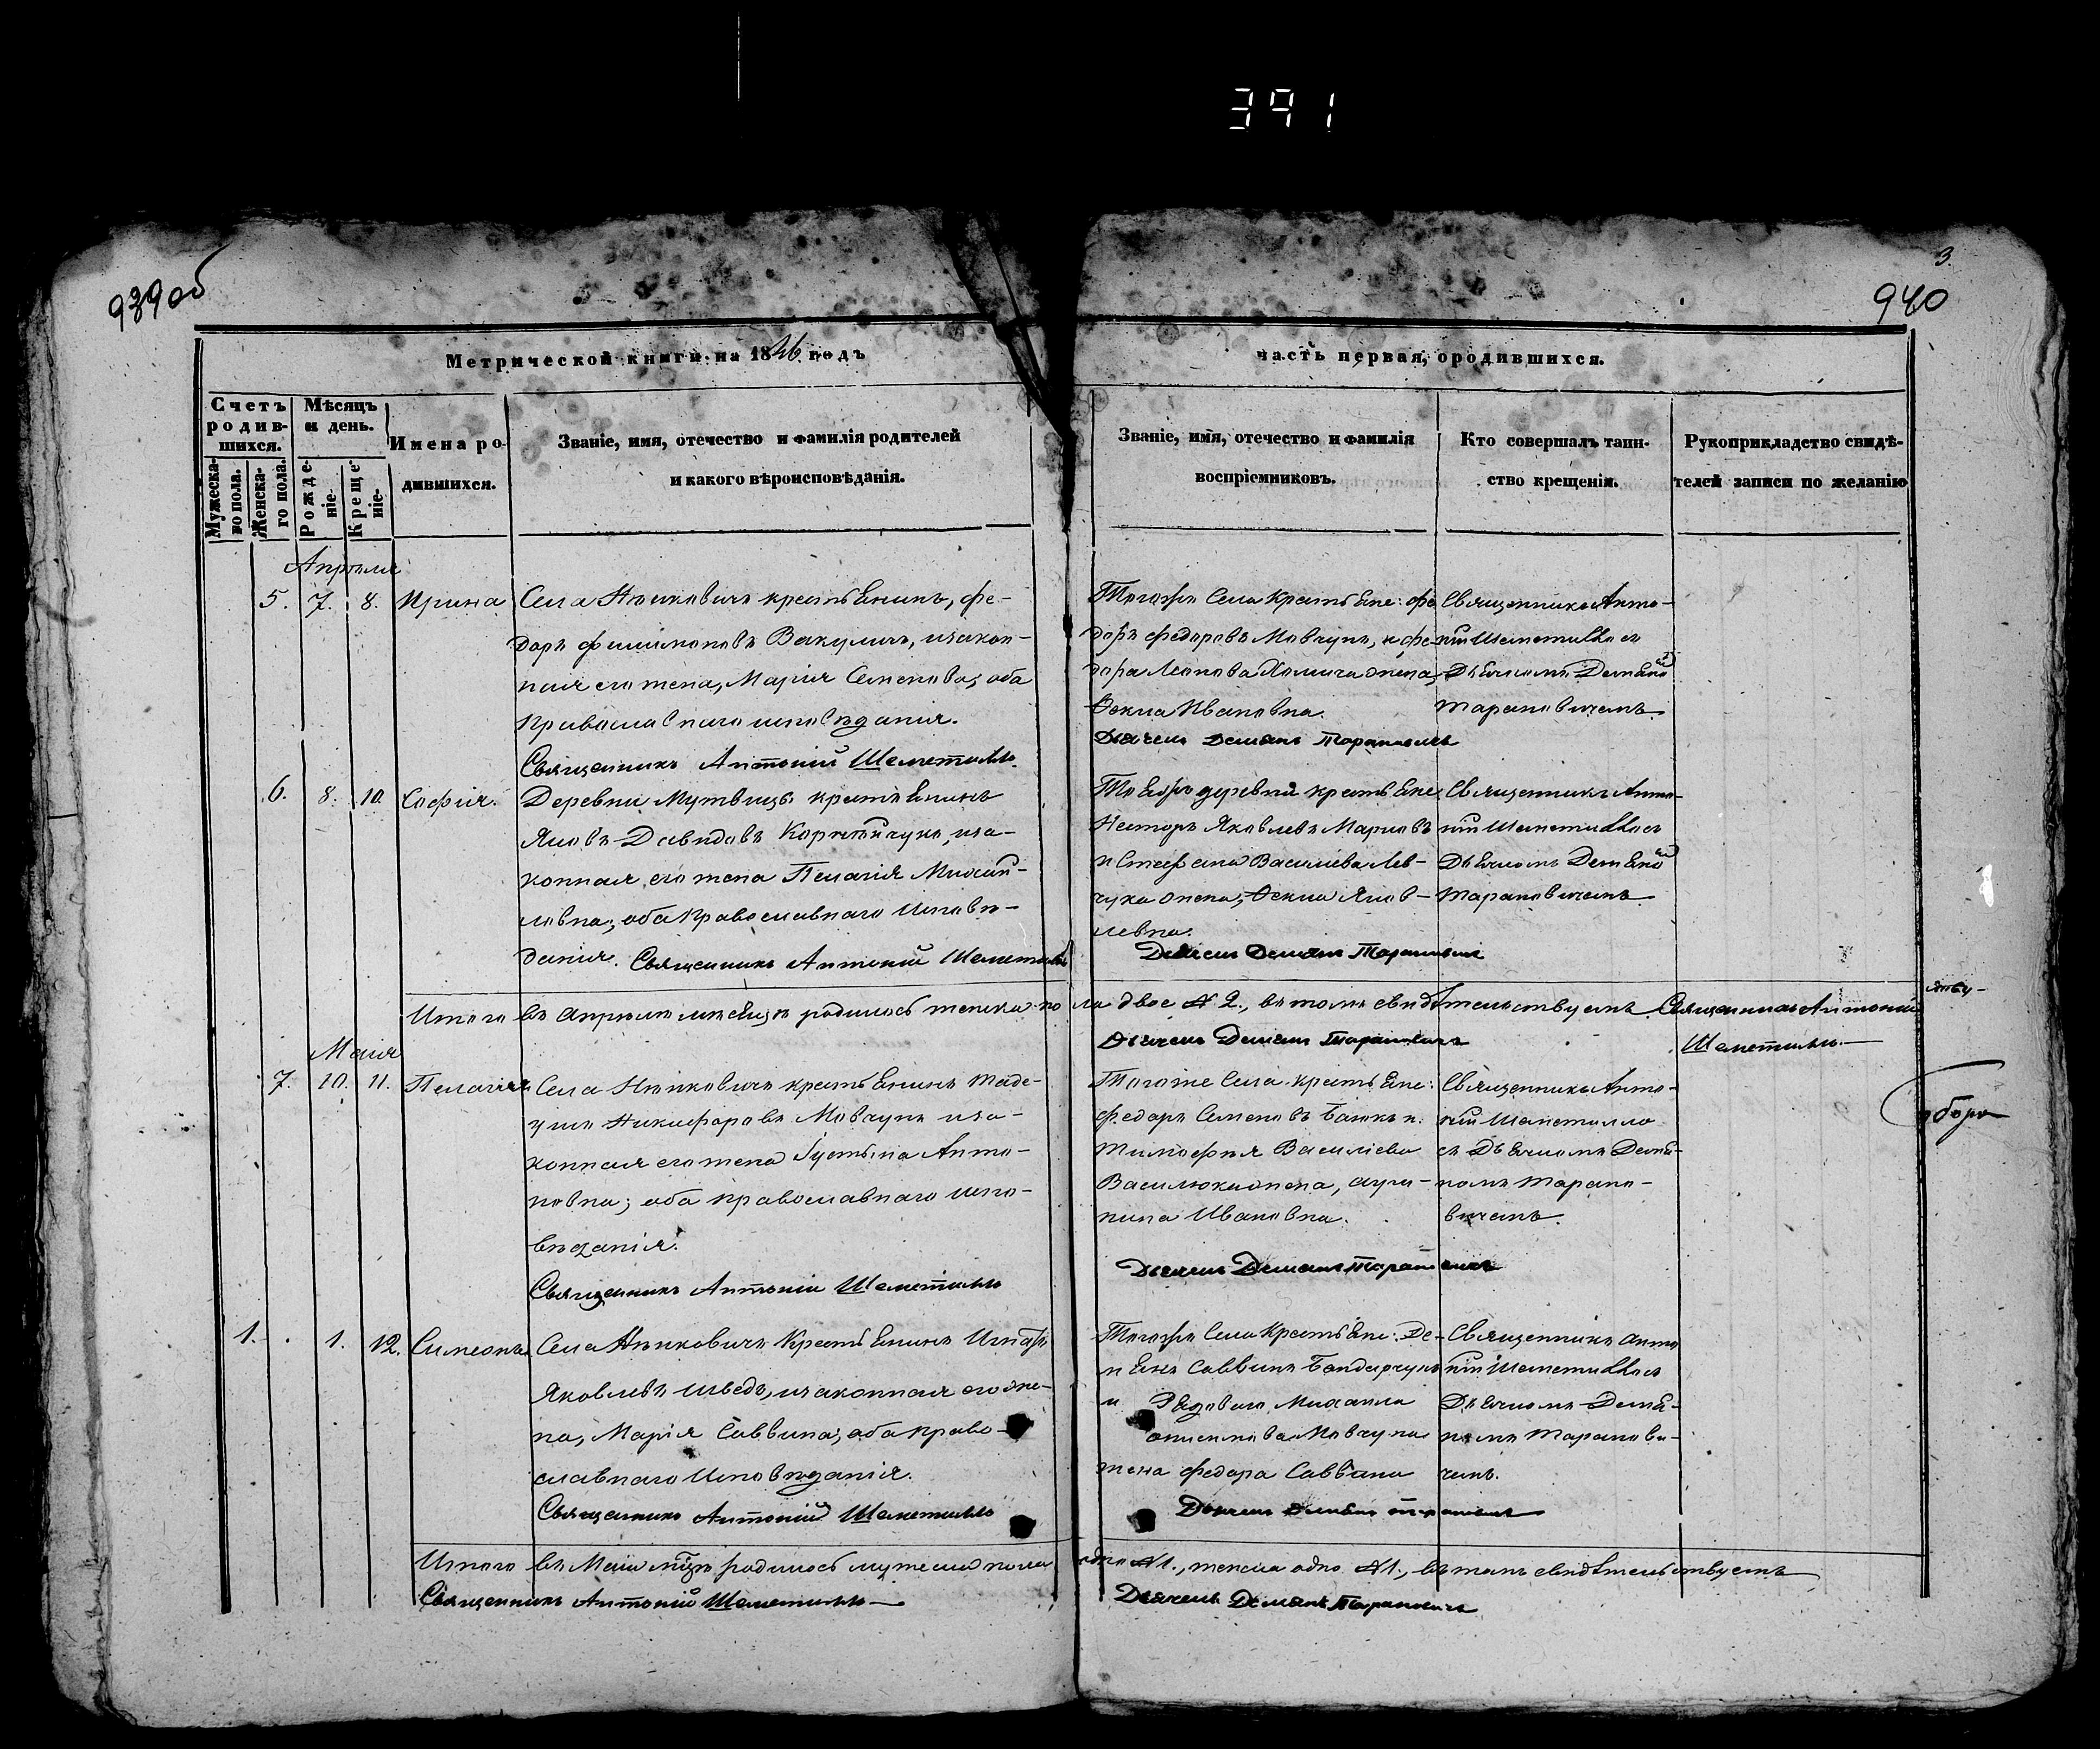 391
3.
939об
940
Метрической книги на 1846 годъ
часть первая, о родившихся.
Счетъ родив-
шихся.
Мужеска-
го пола.
Женска-
го пола.
Мѣсяцъ
и день.
Рожде-
ніе.
Креще-
ніе.
Имена ро-
дившихся.
Званіе, имя, отечество и фамилія родителей
и какого вѣроисповѣданія.
Званіе, имя, отечество и фамилія
воспріемниковъ.
Кто совершалъ таин-
ство крещенія.
Рукоприкладство свидѣ-
телей записи по желанію
Апрѣля
5. 7. 8. Ирина
Села Нѣнковичъ крестьянинъ, фе-
доръ филимоновъ Вакуличъ, и закон-
ная его жена, Марія Семенова; оба
православнаго исповѣданія.
Священникъ Антоній Шеметилло.
Тогожъ Села Крестьяне: фе
доръ федоровъ Мовчунъ, и фе-
дора Леонова Хомича жена,
Ѳекла Ивановна.
Дьячекъ Демьянъ Тарановичъ
Священникъ Анто-
ній Шеметилло съ
Дьячкомъ Демьяно
Тарановичемъ.
6. 8. 10. Софія.
Деревни Мутвицы крестьянинъ
Яковъ Давидовъ Корнейчукъ, и за-
конная его жена Пелагія Михай-
ловна; оба православнаго исповѣ-
данія. Священникъ Антоній Шеметилло
Тоежъ деревни крестьяне
Несторъ Яковлевъ
и Стефана Василіева Лев-
чука жена, Ѳекла Яков-
левна.
Дьячекъ Демьянъ Тарановичъ
Священникъ Анто-
ній Шеметилло съ
Дьячкомъ Демьяно
Тарановичемъ.
Итого въ Апрѣлѣ мѣсяцѣ родилось женска по
ла двое № 2., въ томъ свидѣтельствуемъ Священникъ Антоній
Дьячекъ Демьянъ Тарановичъ
Шеметилло
Маія
7. 10. 11. Пелагія
Села Нѣнковичъ крестьянинъ Таде-
ушъ Никифоровъ Мовчунъ и за-
конная его жена Іустына Анто-
новна; оба православнаго испо-
вѣданія.
Священникъ Антоній Шеметилло
Тогоже Села крестьяне:
федоръ Семеновъ Банкъ и
Тимофея Василіева
Василюка жена,
Ивановна.
Дьячекъ Демьянъ Тарановичъ
Священникъ Анто-
ній Шеметилло
съ Дьячкомъ Демья-
номъ Тарано-
вичемъ.
1. 1. 12. Симеонъ
Села Нѣнковичъ Крестьянинъ Игнатій
Яковлевъ Шведъ, и законная его же-
на, Марія Саввина; оба право-
славнаго Исповѣданія.
Священникъ Антоній Шеметилло
Тогожъ Села Крестьяне: Де-
Саввинъ Бондарчукъ
и Михаила
Мовчуна
жена федора Саввина
Дьячекъ Демьянъ Тарановичъ
Священникъ Анто
ній Шеметилло съ
Дьячкомъ Демья-
номъ Таранови-
чемъ.
Итого въ Маіи мѣцѣ родилось мужеска пола
одно № 1., женска одно № 1., въ томъ свидѣтельствуемъ
Священникъ Антоній Шеметилло
Дьячекъ Демьянъ Тарановичъ